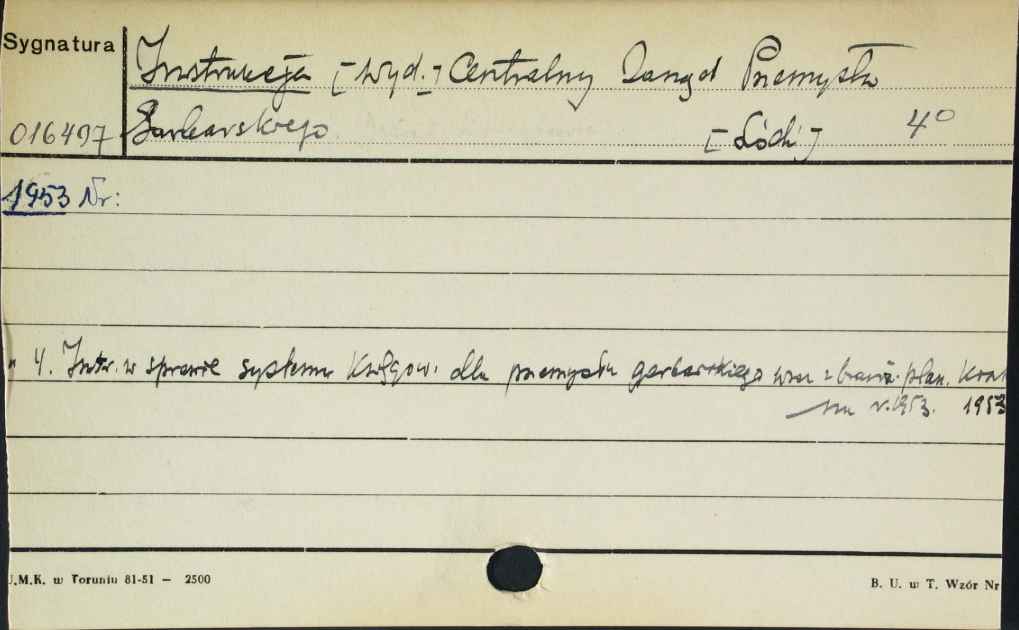 Sygnatura
Instrukcja [wyd.] Centralny Zarząd Przemysłu
016497 Garbarskiego [Łódź] 4°
1953 Nr:
" 4. Instr. w sprawie systemu księgow. dla przemysłu garbarskiego wraz z branż. plan. kont
na r. 1953. 1953
U.M.K. w Toruniu 81-51 — 2500
B. U. w T. Wzór Nr